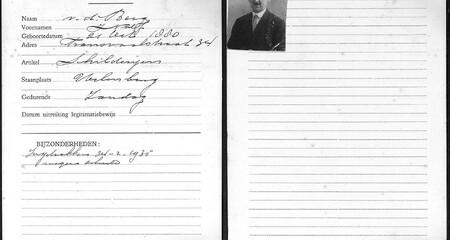 Naam v. d. Berg
Voornamen
Geboortedatum 1880
Adres Transvaalstraat 34
Artikel Schilderijen
Staanplaats Uilenburg
Gedurende Zondag
Datum uitreiking legitimatiebewijs
BIJZONDERHEDEN:
Ingetrokken 1935
wegens